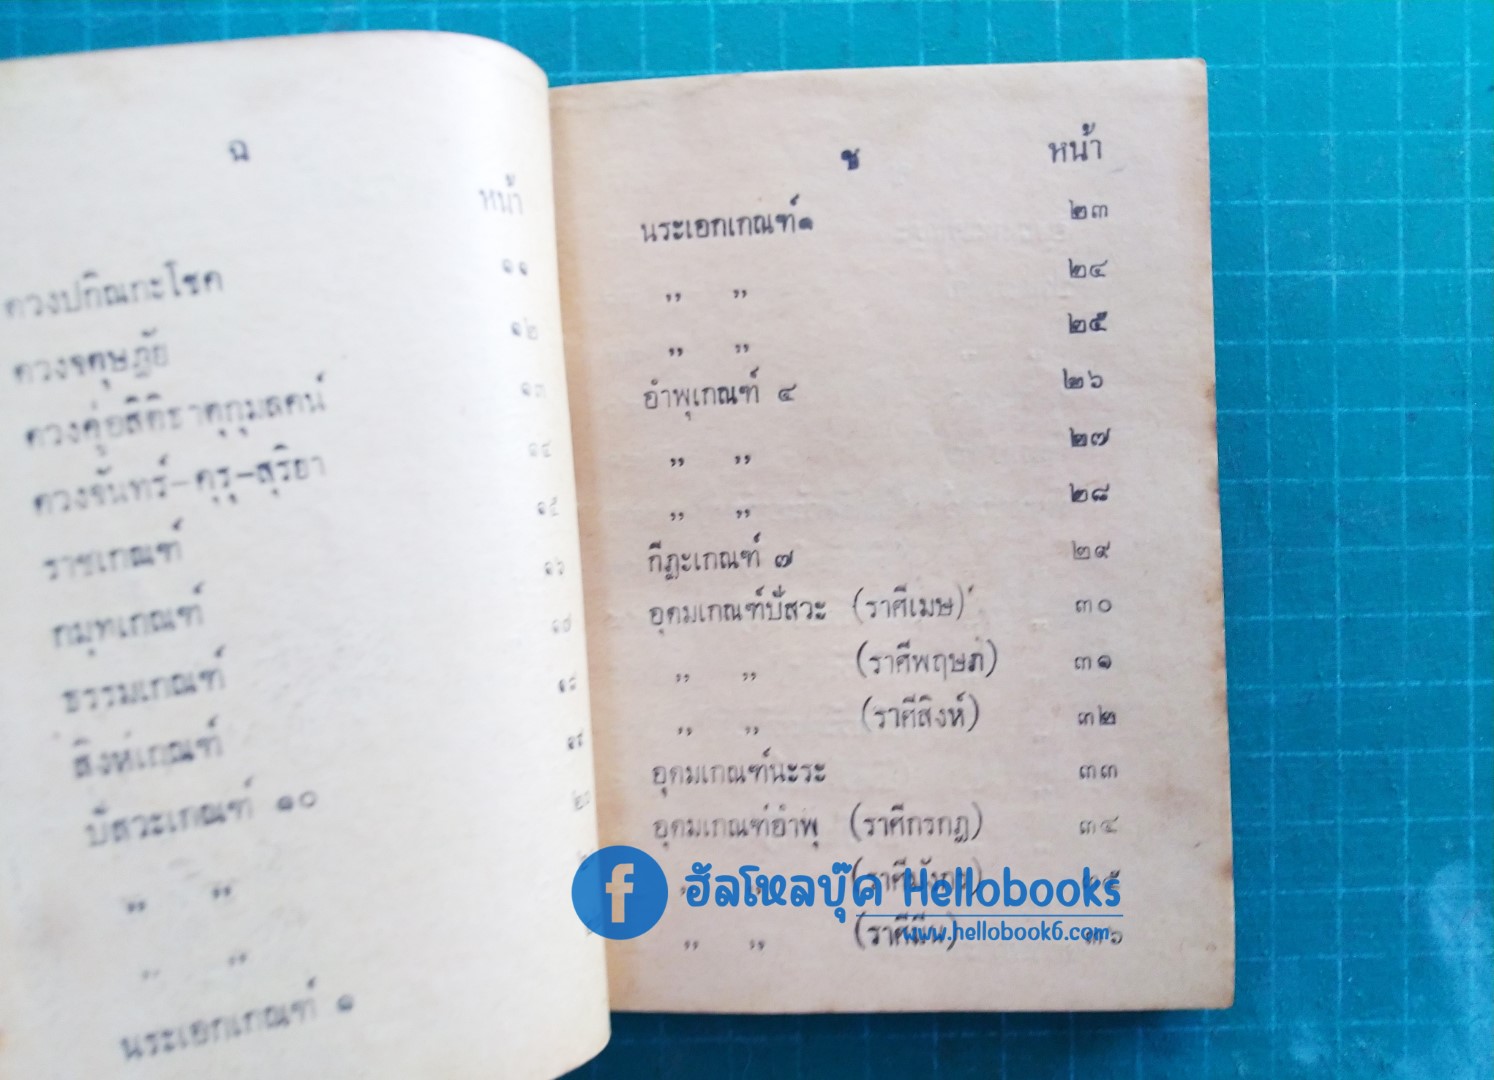 ฉ
หน้า
ดวงปกิณกะโชค ๑๑
ดวงจตุษฎัย ๑๒
ดวงคู่อสิติธาตุกุมลคน์ ๑๓
ดวงจันทร์-คุรุ-สุริยา ๑๔
ราชเกณฑ์ ๑๕
กมุทเกณฑ์ ๑๖
ธรรมเกณฑ์ ๑๗
สิงห์เกณฑ์ ๑๘
ปัสวะเกณฑ์ ๑๐ ๑๙
,, ,,
,, ,,
นระเอกเกณฑ์ ๑
ช หน้า
นระเอกเกณฑ์๑ ๒๓
,, ,, ๒๔
,, ,, ๒๕
อำพุเกณฑ์ ๔ ๒๖
,, ,, ๒๗
,, ,, ๒๘
กีฏะเกณฑ์ ๗ ๒๙
อุดมเกณฑ์ปัสวะ (ราศีเมษ) ๓๐
,, ,, (ราศีพฤษภ) ๓๑
,, ,, (ราศีสิงห์) ๓๒
อุดมเกณฑ์นะระ ๓๓
อุดมเกณฑ์อำพุ (ราศีกรกฎ) ๓๔
,, ,, (ราศีมังกร) ๓๕
,, ,, (ราศีมีน) ๓๖
f ฮัลโหลบุ๊ค Hellobooks
www.hellobook6.com